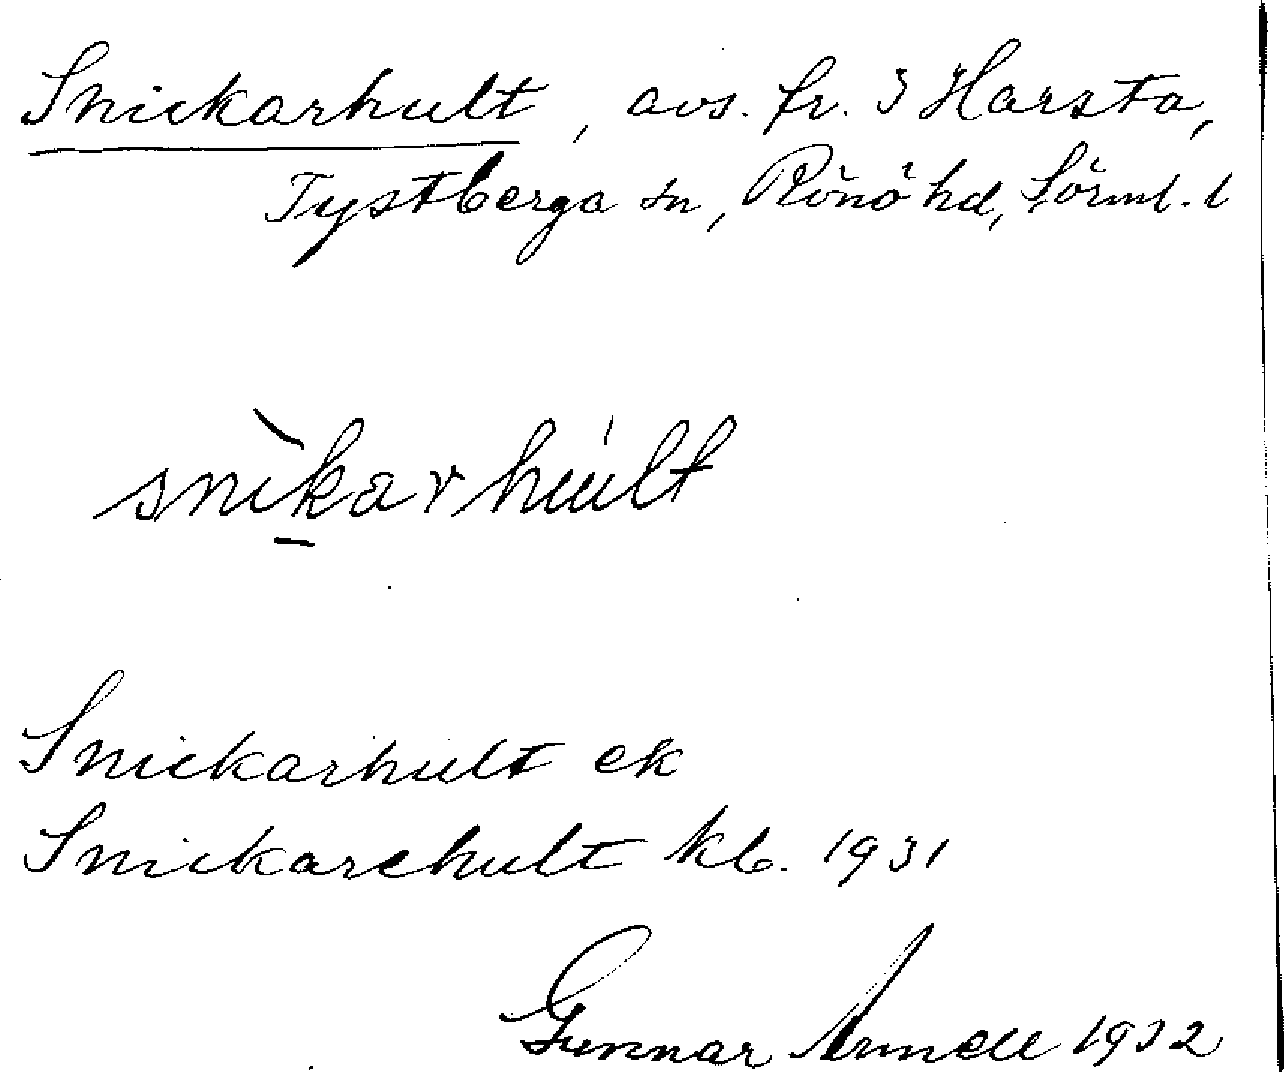 Snickarhult, avs. fr. S Harsta,
Tystberga sn, Rönö hd, Sörml. l
snìkarhúlt
Snickarhult ek
Snickarehult kb. 1931
Gunnar Arnell 1932